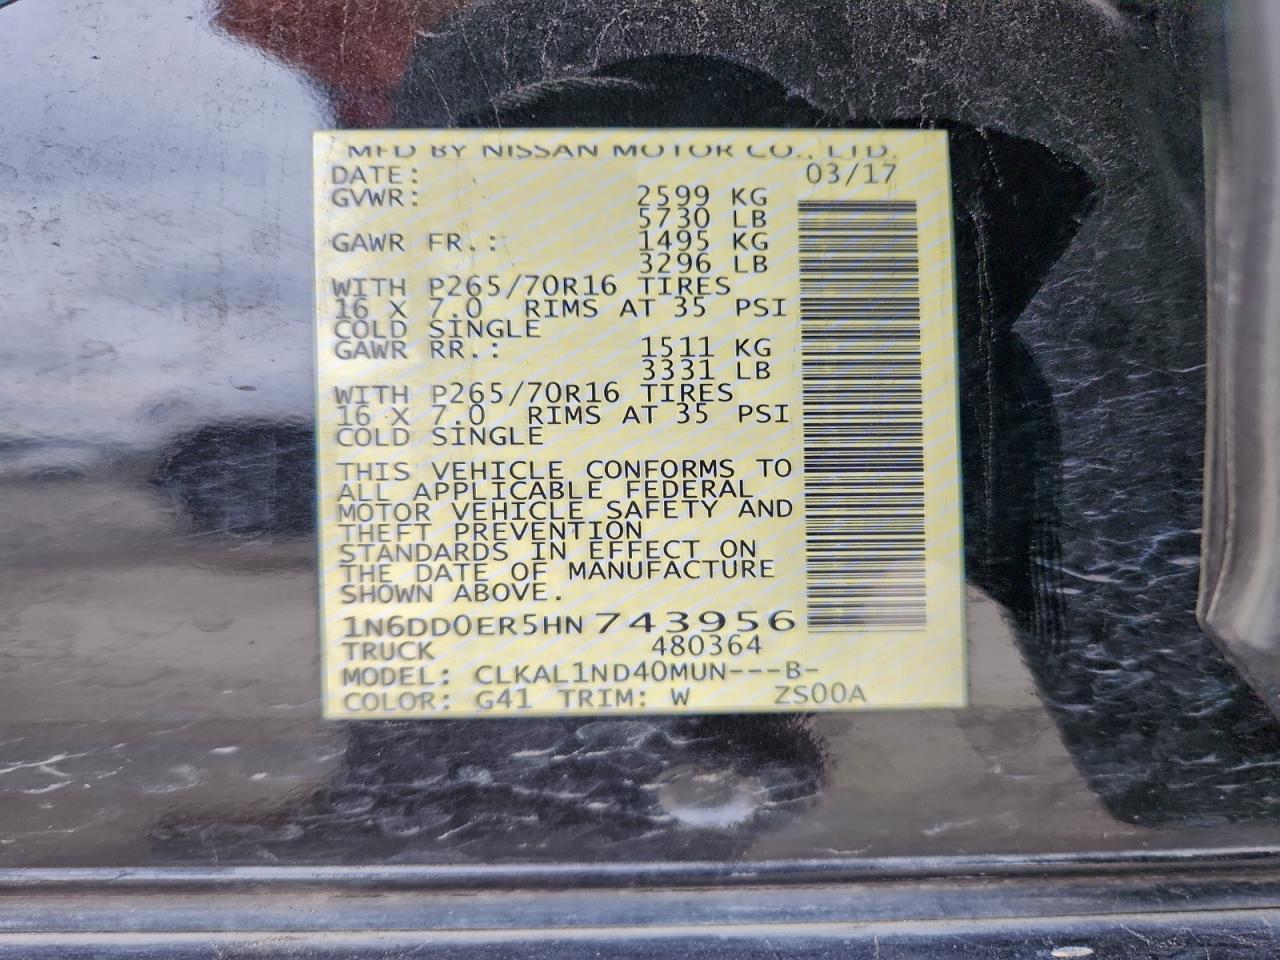 MFD BY NISSAN MOTOR CO., LTD.
DATE: 03/17
GVWR: 2599 KG
5730 LB
GAWR FR.: 1495 KG
3296 LB
WITH P265/70R16 TIRES
16 X 7.0 RIMS AT 35 PSI
COLD SINGLE
GAWR RR.: 1511 KG
3331 LB
WITH P265/70R16 TIRES
16 X 7.0 RIMS AT 35 PSI
COLD SINGLE
THIS VEHICLE CONFORMS TO
ALL APPLICABLE FEDERAL
MOTOR VEHICLE SAFETY AND
THEFT PREVENTION
STANDARDS IN EFFECT ON
THE DATE OF MANUFACTURE
SHOWN ABOVE.
1N6DD0ER5HN743956
TRUCK 480364
MODEL: CLKAL1ND40MUN---B-
COLOR: G41 TRIM: W ZS00A